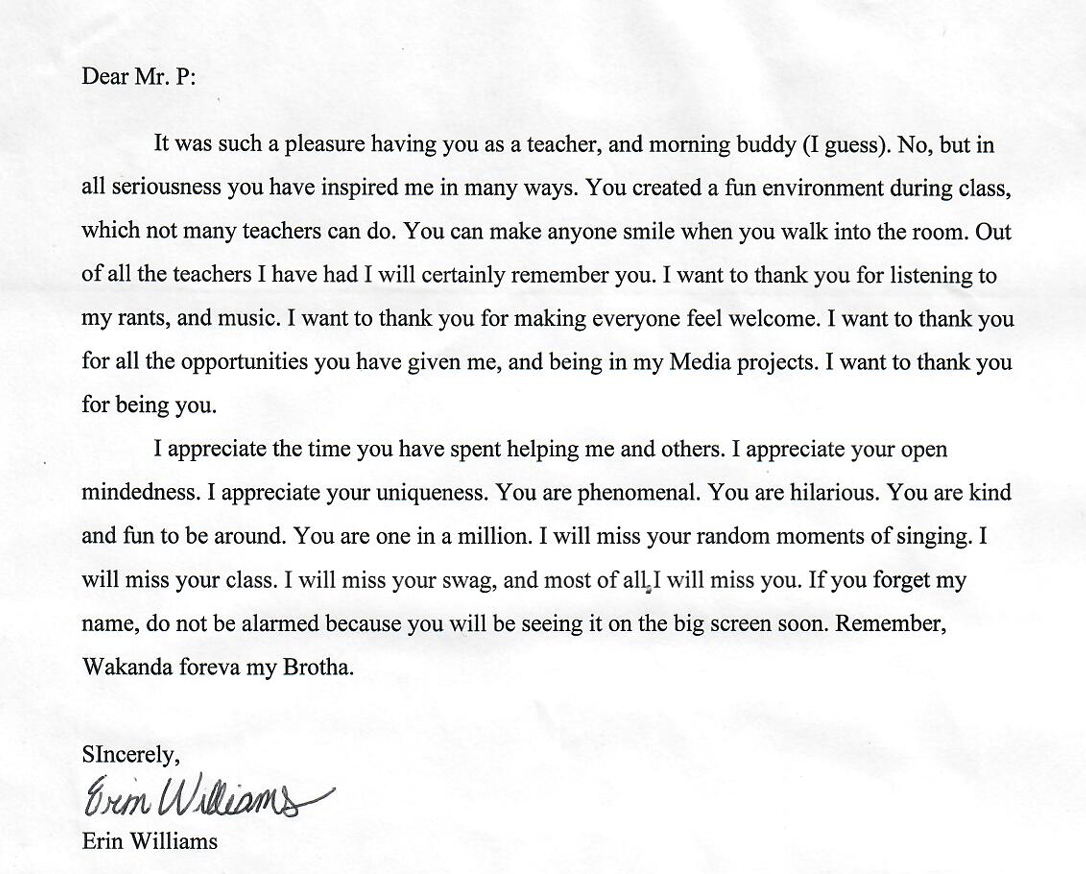 Dear Mr. P:
It was such a pleasure having you as a teacher, and morning buddy (I guess). No, but in
all seriousness you have inspired me in many ways. You created a fun environment during class,
which not many teachers can do. You can make anyone smile when you walk into the room. Out
of all the teachers I have had I will certainly remember you. I want to thank you for listening to
my rants, and music. I want to thank you for making everyone feel welcome. I want to thank you
for all the opportunities you have given me, and being in my Media projects. I want to thank you
for being you.
I appreciate the time you have spent helping me and others. I appreciate your open
mindedness. I appreciate your uniqueness. You are phenomenal. You are hilarious. You are kind
and fun to be around. You are one in a million. I will miss your random moments of singing. I
will miss your class. I will miss your swag, and most of all, I will miss you. If you forget my
name, do not be alarmed because you will be seeing it on the big screen soon. Remember,
Wakanda foreva my Brotha.
SIncerely,
Erin Williams
Erin Williams